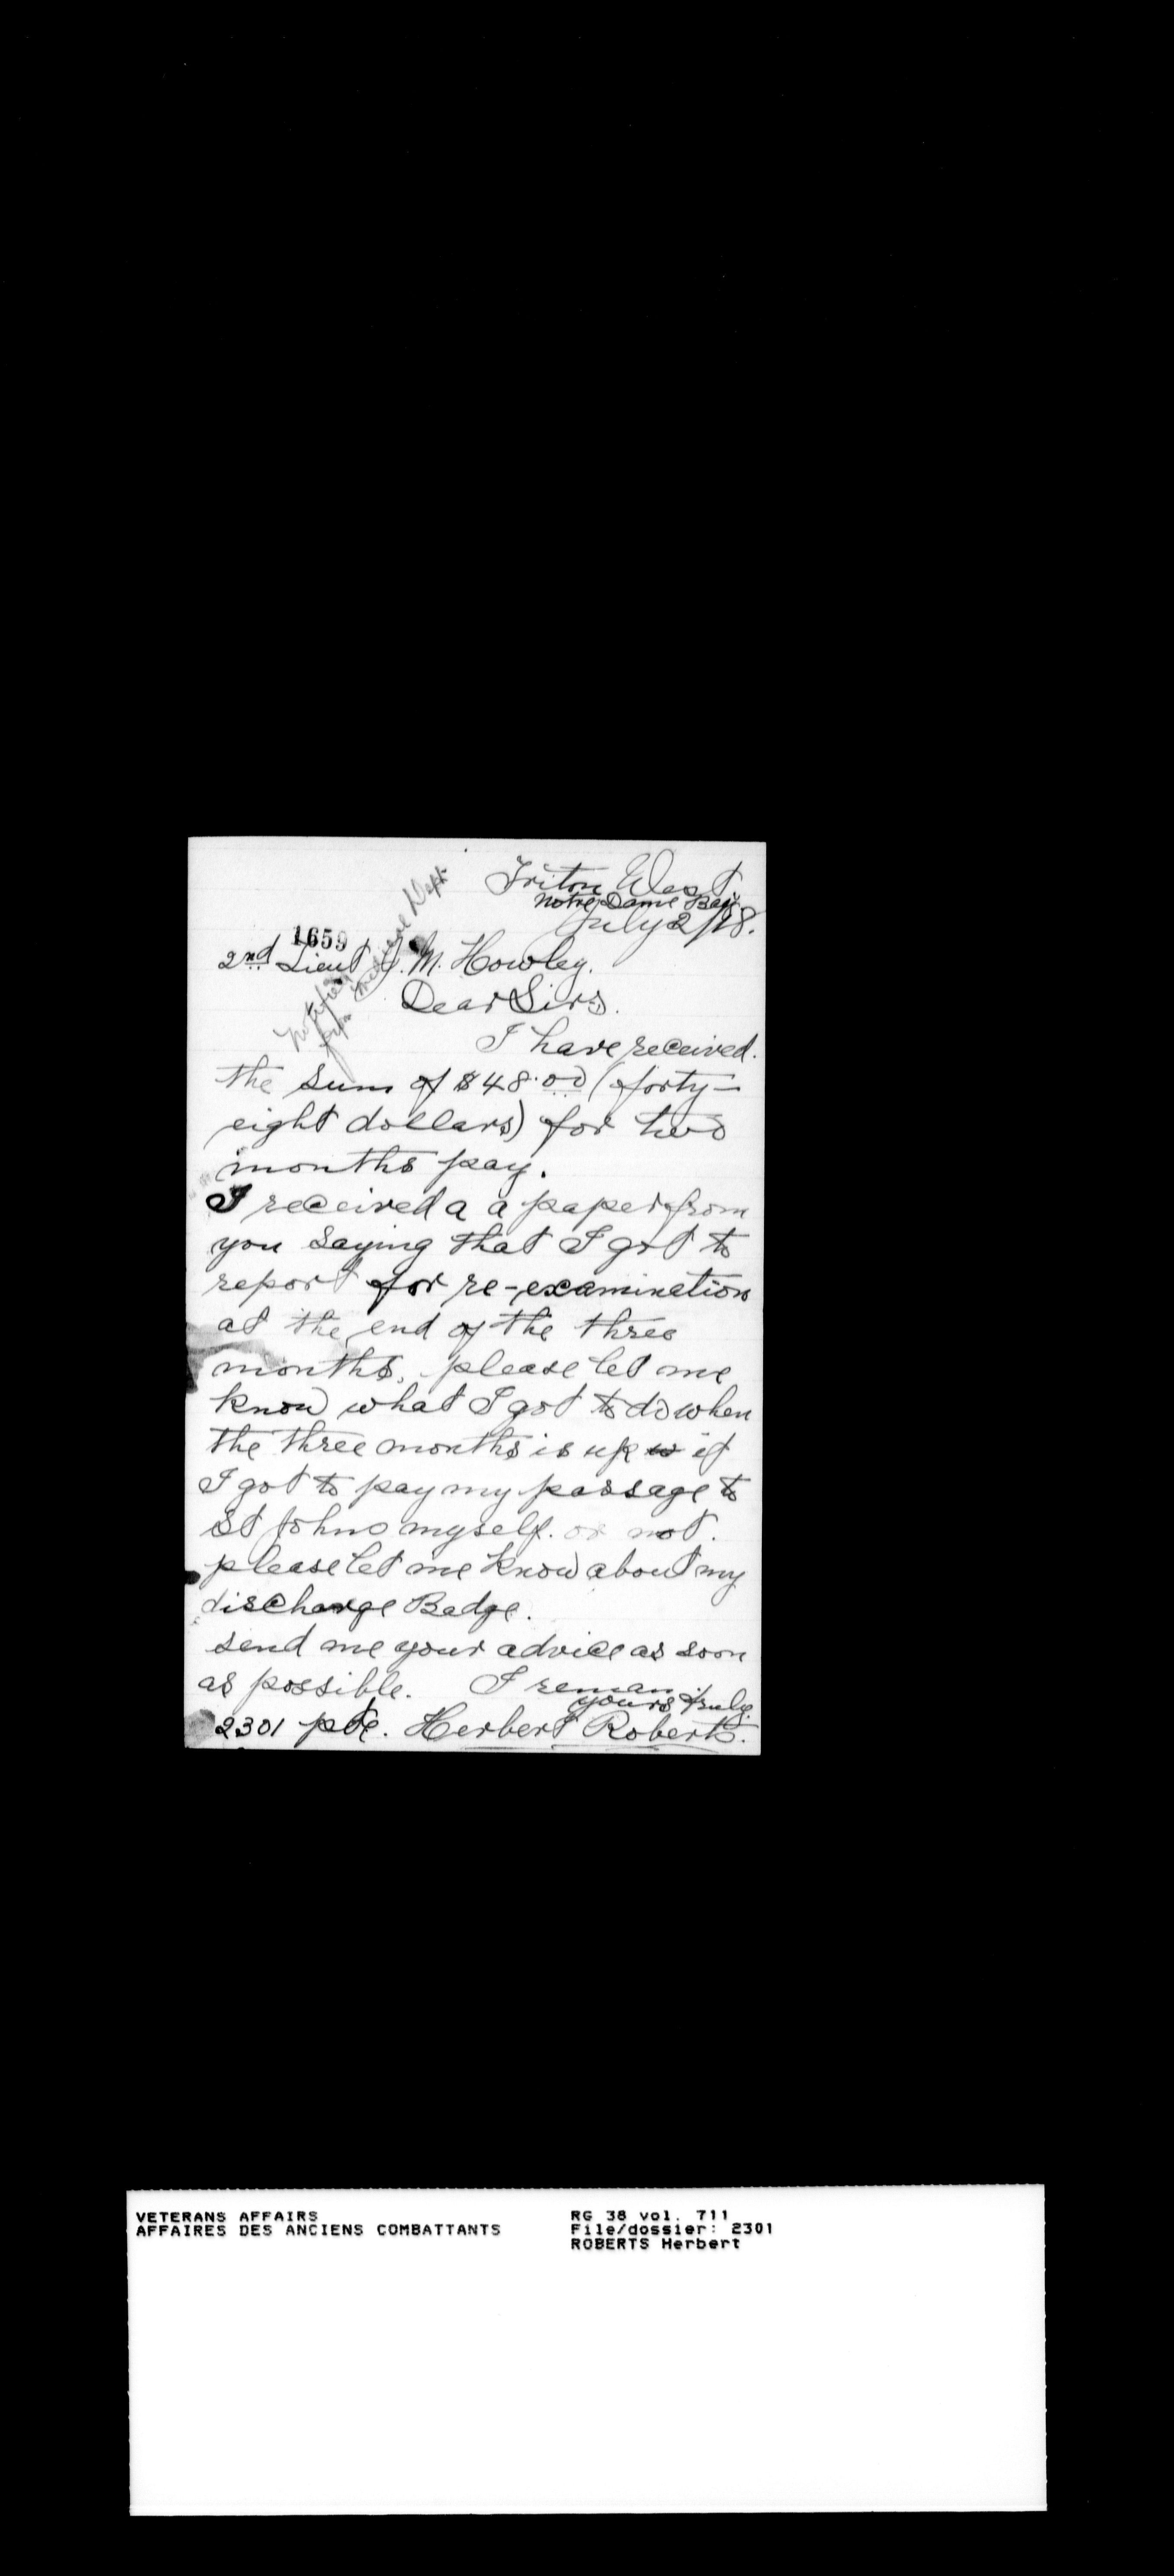 Triton West
Notre Dame Bay
July 2/18.
1659
2nd Lieut J. M. Howley.
Medical Dept.
Dear Sirs.
I have received.
the sum of $48.00 (forty-
eight dollars) for two
months pay.
I received a a paper from
you saying that I got to
report for re-examination
at the end of the three
months, please let me
know what I got to do when
the three months is up if
I got to pay my passage to
St Johns myself. or not.
please let me know about my
discharge Badge.
send me your advice as soon
as possible. I reman
yours truly.
2301 pte. Herbert Roberts.
VETERANS AFFAIRS
AFFAIRES DES ANCIENS COMBATTANTS
RG 38 vol. 711
File/dossier: 2301
ROBERTS Herbert